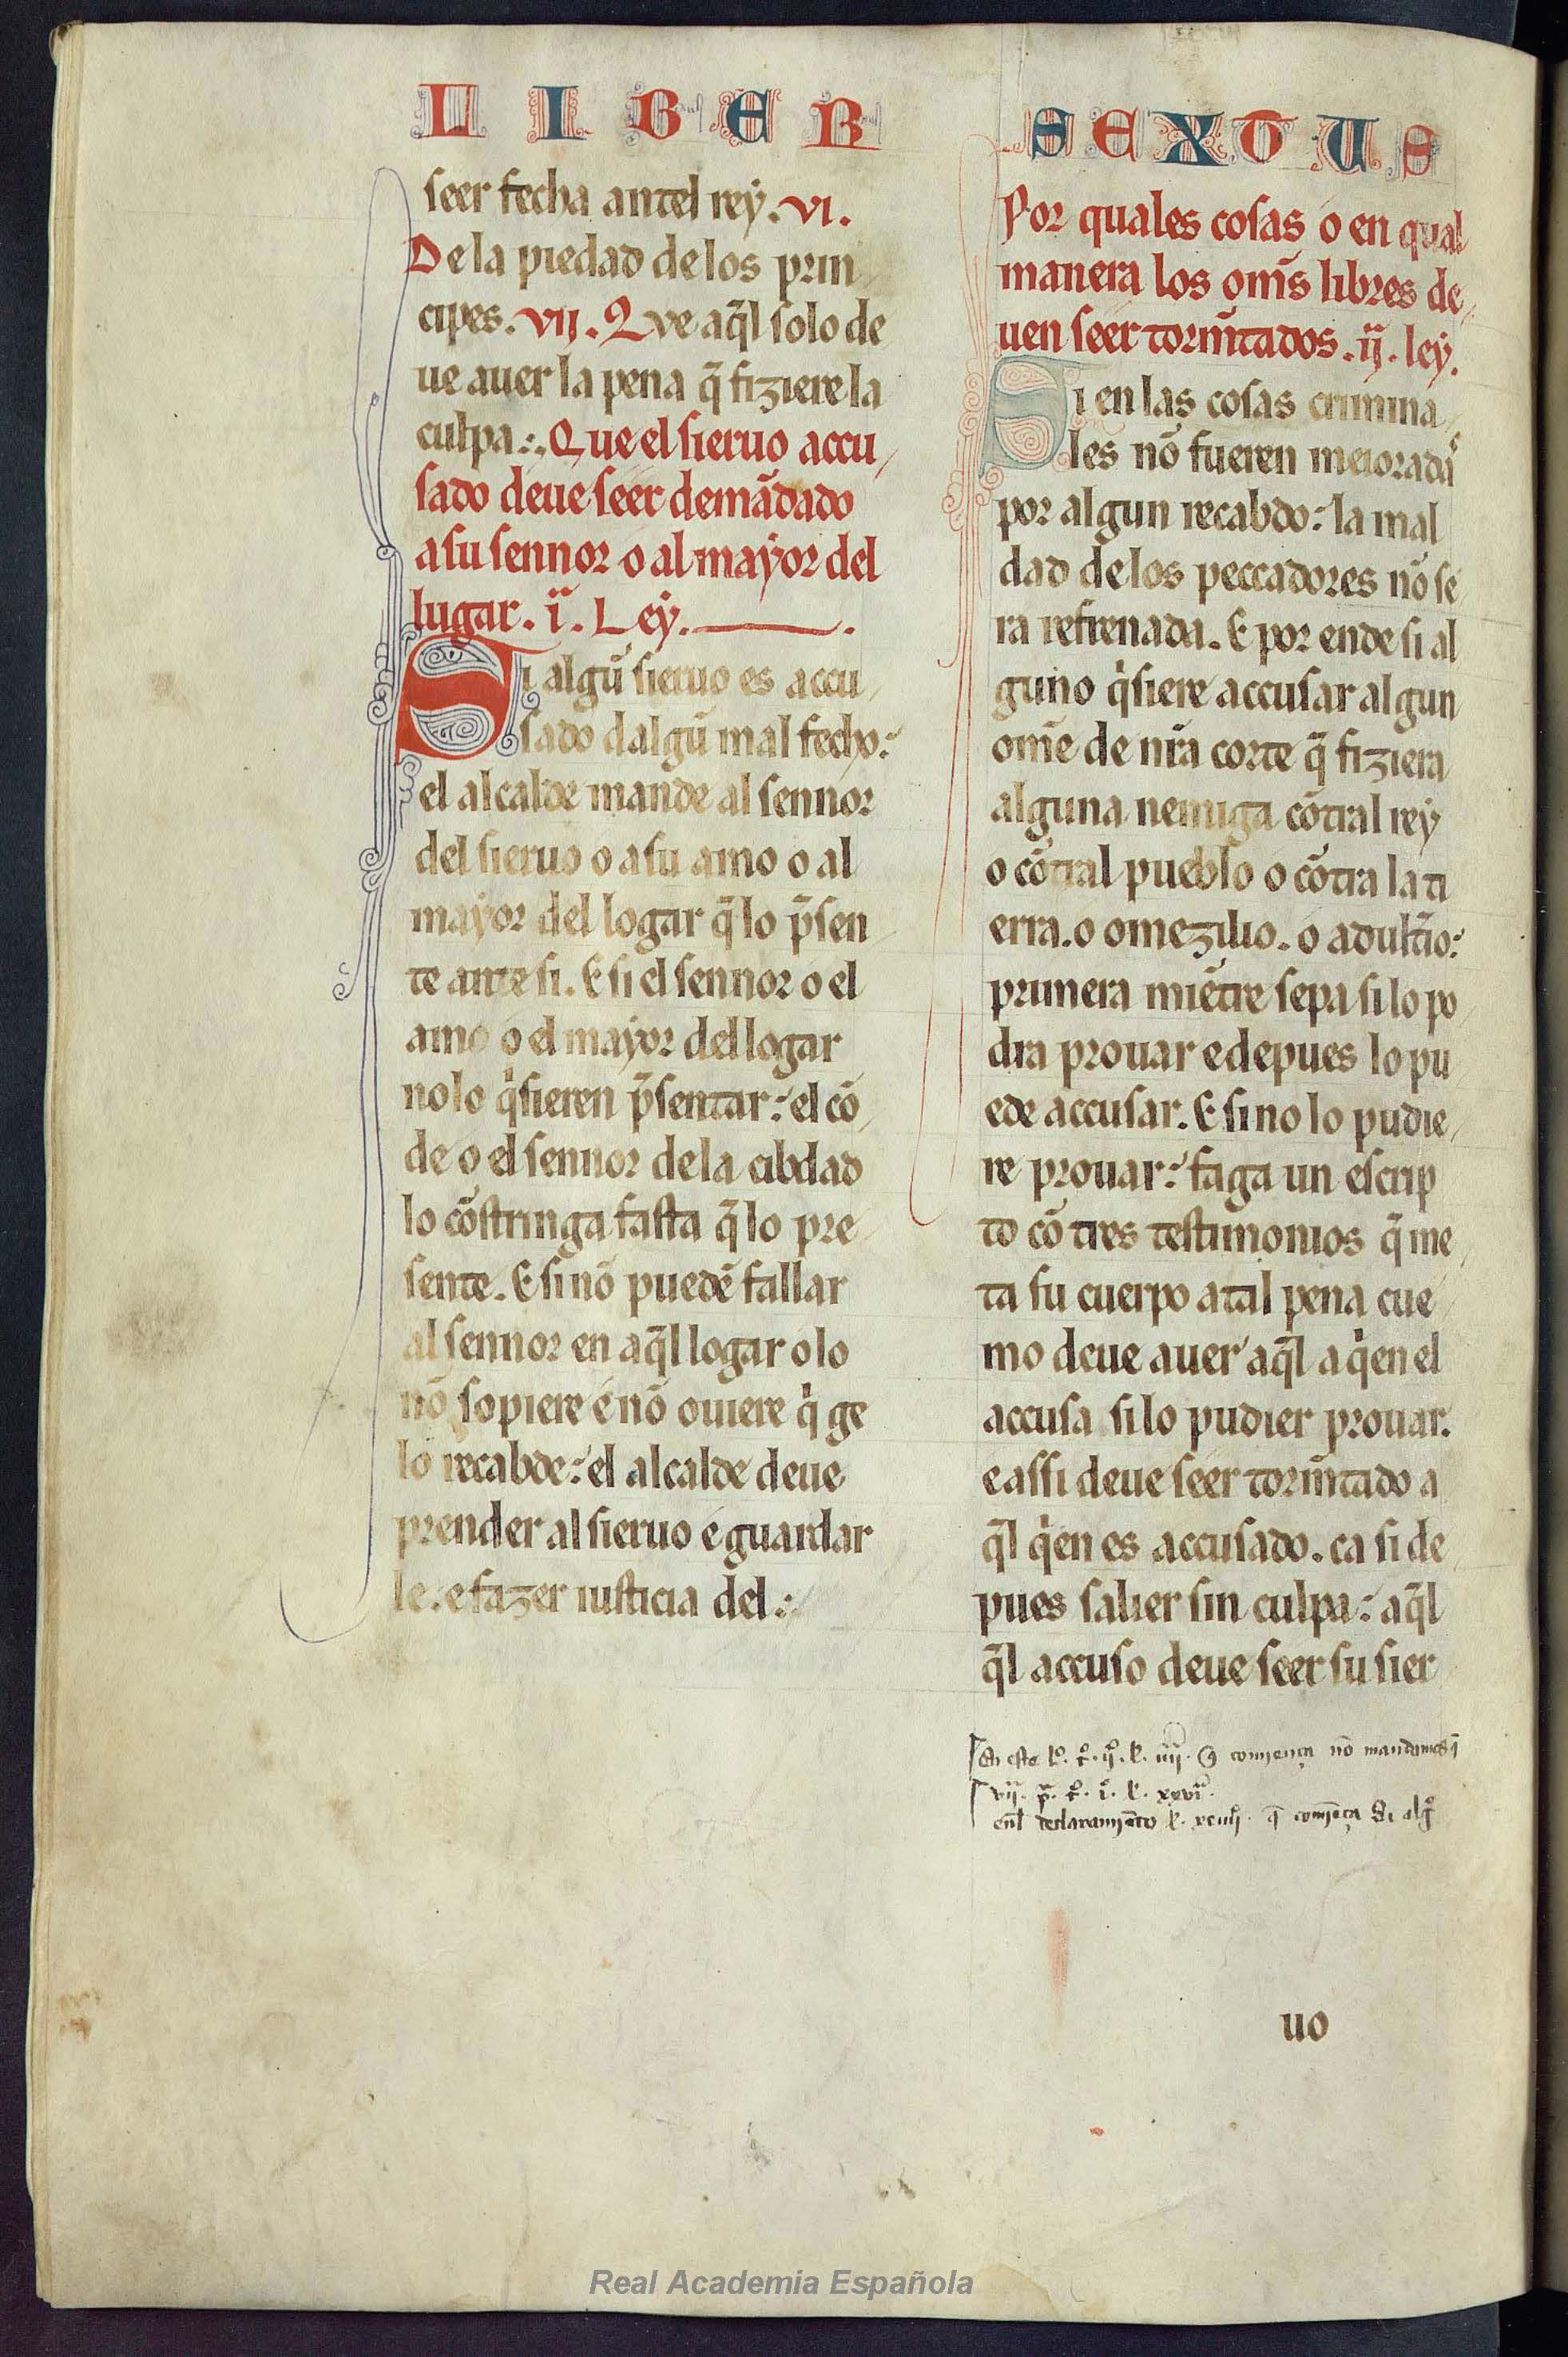 LIBER
seer fecha antel reẏ. vi.
De la piedad delos prin
cipes. vij. Que aq̃l solo de
ue auer la pena q̃ fiziere la
culpa:. Que el sieruo accu
sado deue seer demãdado
a su sennor o al maẏor del
lugar. i. Leẏ.
Si algũ sieruo es accu
sado dalgũ mal fecho:
el alcalde mande al sennor
del sieruo o a su amo o al
maẏor del logar q̃ lo p̃sen
te ante si. E si el sennor o el
amo o el mayor del logar
no lo q̇sieren p̃sentar: el cõ
de o el sennor dela cibdad
lo cõstringa fasta q̃ lo pre
sente. E si nõ puedẽ fallar
al sennor en aq̃l logar o lo
nõ sopiere e nõ ouiere q̇ ge
lo recabde: el alcalde deue
prender al sieruo e guardar
le. e fazer iusticia del:.
SEXTUS
Por quales cosas o en qual
manera los om̃s libres de
uen seer torm̃tados. ij. leẏ.
Si en las cosas crimina
les nõ fueren meioradas
por algun recabdo: la mal
dad delos peccadores nõ se
ra refrenada. E por ende si al
guno q̇siere accusar algun
om̃e de nr̃a corte q̃ fiziera
alguna nemiga cõtral reẏ
o cõtral pueblo o cõtra la ti
erra. o omezilio. o adult̃io:
primera miẽtre sepa si lo po
dra prouar e depues lo pu
ede accusar. E si no lo pudie
re prouar: faga un escrip
to cõ tres testimonios q̃ me
ta su cuerpo a tal pena cue
mo deue auer aq̃l a q̇en el
accusa si lo pudier prouar.
e assi deue seer torm̃tado a
q̃l q̇en es accusado. ca si de
pues salier sin culpa: aq̃l
q̃l accuso deue seer su sier
En este lº. tº. ijº. l. iiij. q̃ comiença nõ mandamos q̃
vij. p. tº. i. l. xxvi.
enl declaramiẽto l. q̃ comiẽça Si algº
uo
Real Academia Española